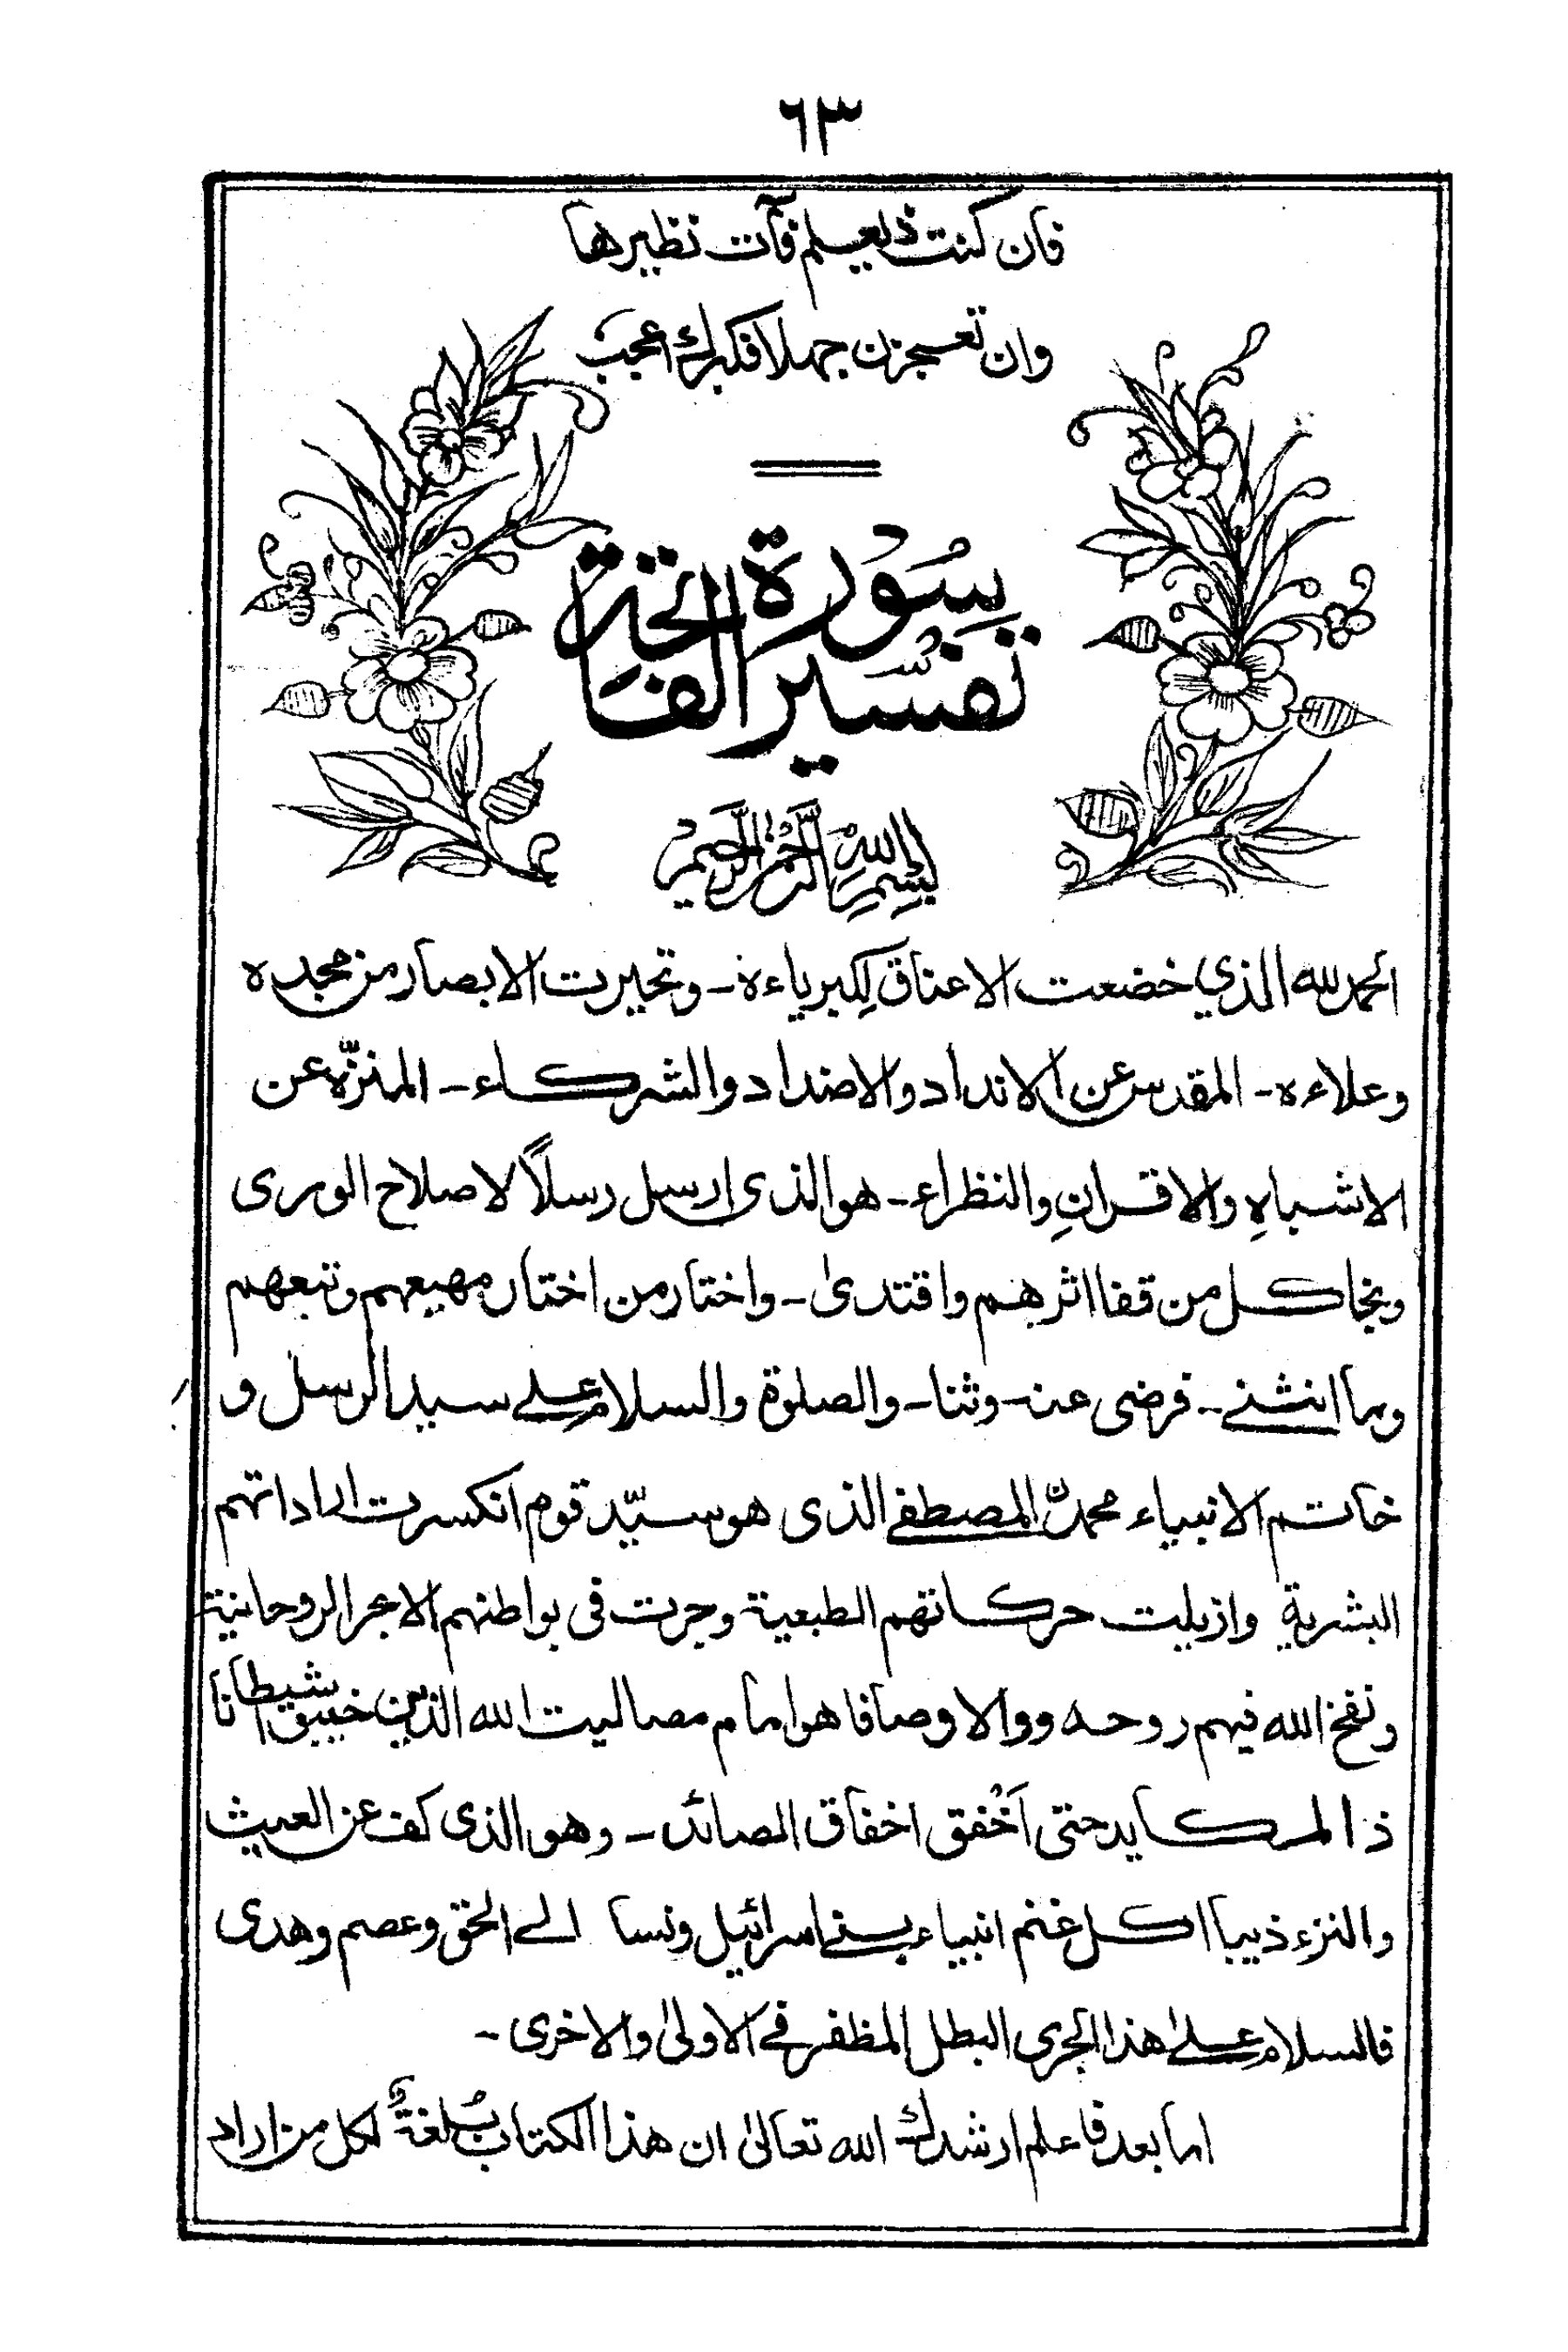 ٦٣
فان كنت ذا علم فآت نظيرها
وان تعجزن جهلا فكبرك اعجب
تفسير سورة الفاتحة
بسم الله الرحمن الرحيم
الحمد لله الذي خضعت الاعناق لِكبرياءه - وتحيرت الابصار من مجده
وعلاءه - المقدس عن الانداد والاضداد والشركاء - المنزّه عن
الاشباهِ والاقرانِ والنظراء - هوالذى ارسل رسلاً لاصلاح الورى
ونجا كل من قفا اثرهم واقتدىٰ - واختار من اختار مهيعهم وتبعهم
وما انثنے - فرضى عنه - وثنا - والصلوة والسلام علے سيد الرسل و
خاتم الانبياء محمدٌن المصطفے الذى هو سيّد قوم انكسرت اراداتهم
البشرية وازيلت حركاتهم الطبعية وجرت فى بواطنهم الابحر الروحانية
ونفخ الله فيهم روحه ووالا وصافا هو امام مصاليت الله الذين شيطانا
ذا المكايد حتى اَخْفق اخفاق الصائد - وهو الذى كف عن العيث
والنزء ذيبا اكل غنم انبياء بنے اسرائيل ونسا الے الحق وعصم وهدى
فالسلام علےٰ هذا الجرى البطل المظفر فے الاولىٰ والاخرى -
اما بعد فاعلم ارشدك الله تعالىٰ ان هذا الكتاب بُلغةٌ لكل من اراد